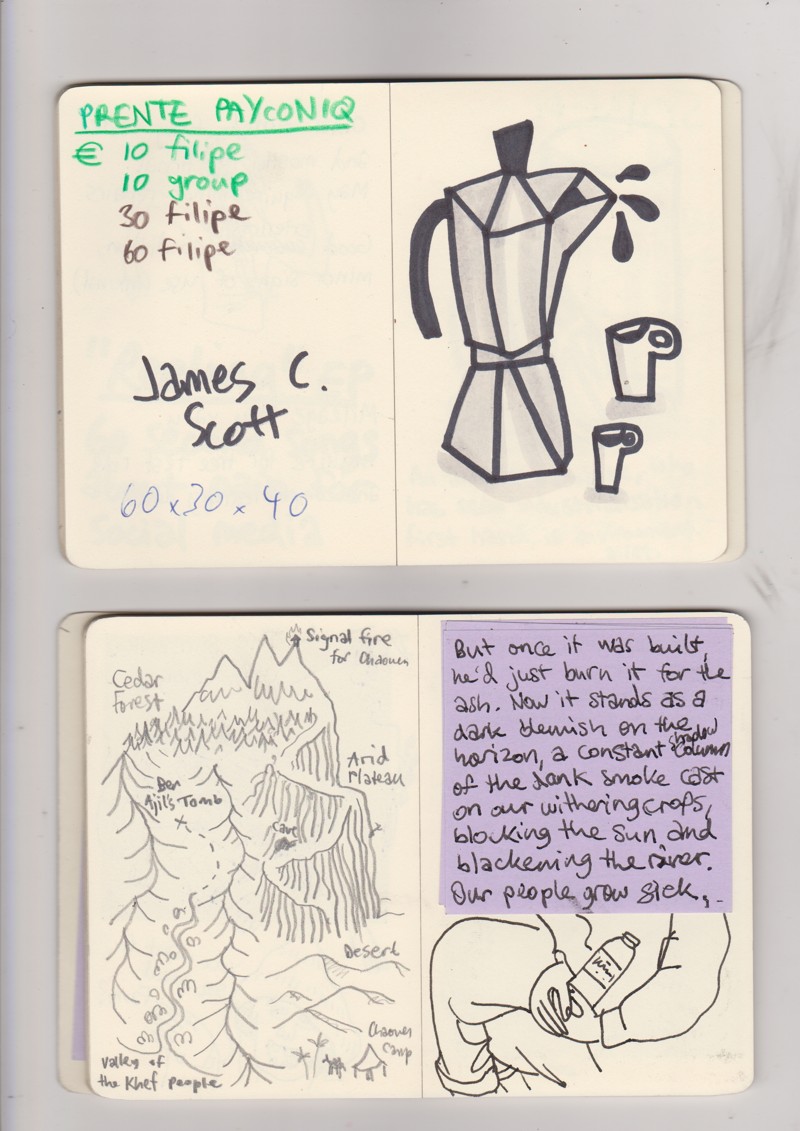 PRENTE PAYCONIQ
€ 10 filipe
10 group
30 filipe
60 filipe
James C.
Scott
60 x 30 x 40
Signal fire
for Chaouen
Cedar
Forest
Arid
Plateau
Ben
Ajil's Tomb
Cave
Desert
Chaouen
Camp
Valley of
the Khef People
But once it was built,
he'd just burn it for the
ash. Now it stands as a
dark blemish on the
horizon, a constant shadow column
of the dank smoke cast
on our withering crops,
blocking the sun and
blackening the river.
Our people grow sick,..